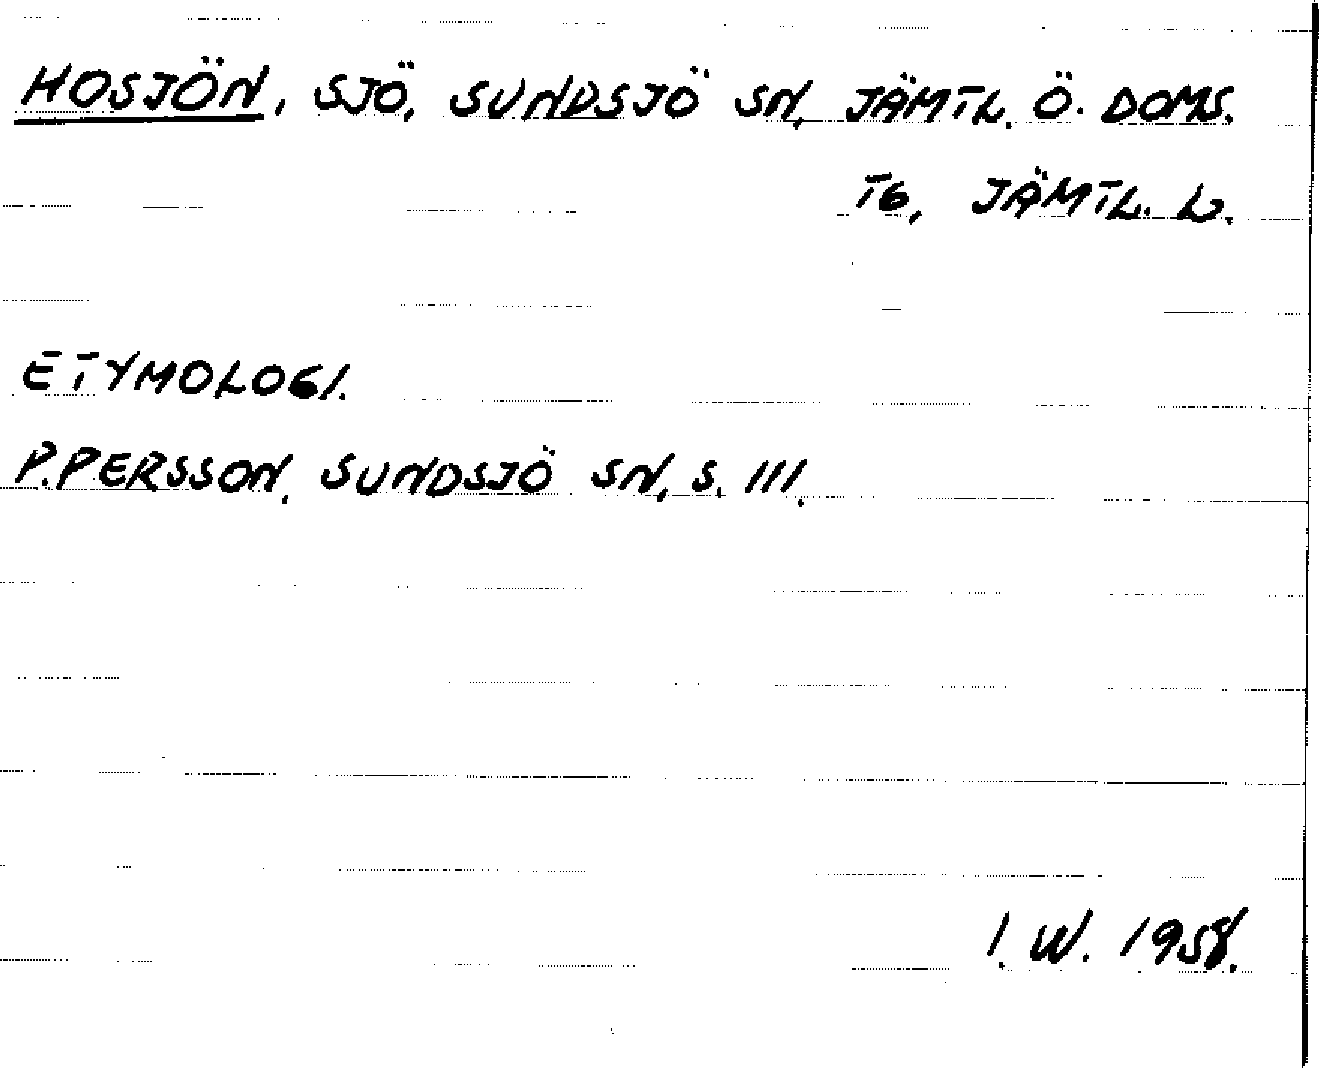 HOSJÖN, SJÖ, SUNDSJÖ SN, JÄMTL. Ö. DOMS.
TG, JÄMTL. L.
ETYMOLOGI.
P.PERSSON, SUNDSJÖ SN, S. 111.
I. W. 1958.